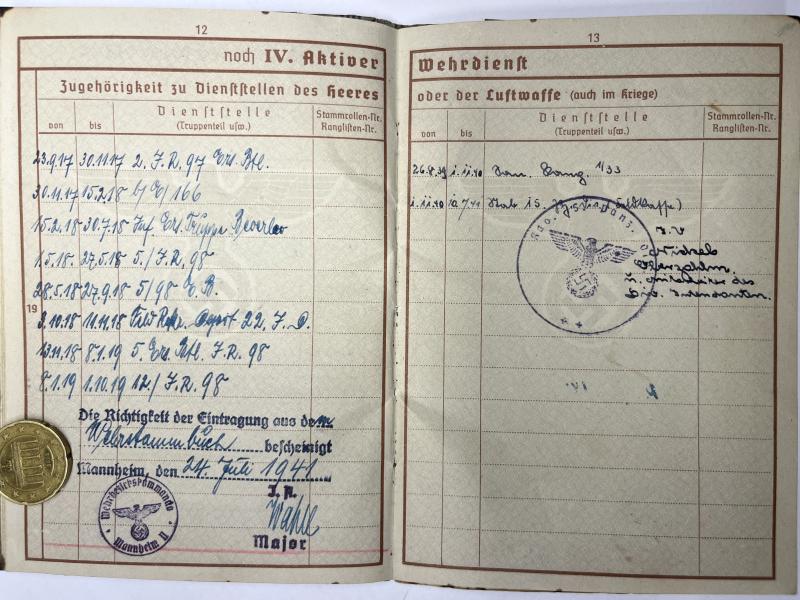 12
noch IV. Aktiver
Zugehörigkeit zu Dienststellen des Heeres
von
bis
Dienststelle
(Truppenteil usw.)
Stammrollen-Nr.
Ranglisten-Nr.
23.9.17 30.11.17 2. J.R. 97 Ers. Btl.
30.11.17 15.2.18 166
15.2.18 30.7.18 Inf. Ers. Truppe Beverloo
1.5.18. 27.5.18 5./J.R. 98
28.5.18 27.9.18 5/98
19
3.10.18 11.11.18 Feld Rekr. Depot 22. J.D.
13.11.18 8.1.19 5. Ers. Btl. J.R. 98
8.1.19 1.10.19 12./J.R. 98
Die Richtigkeit der Eintragung aus dem
Wehrstammbuch bescheinigt
Mannheim, den 24. Juli 1941
J.A.
Major
Wehrbezirkskommando
Mannheim II
13
Wehrdienst
oder der Luftwaffe (auch im Kriege)
von
bis
Dienststelle
(Truppenteil usw.)
Stammrollen-Nr.
Ranglisten-Nr.
26.8.39 1.11.40 San. Komp. 1/33
1.11.40 Stab 15.
J.V.
Oberzahlm.
u. des
Div. Intendanten.